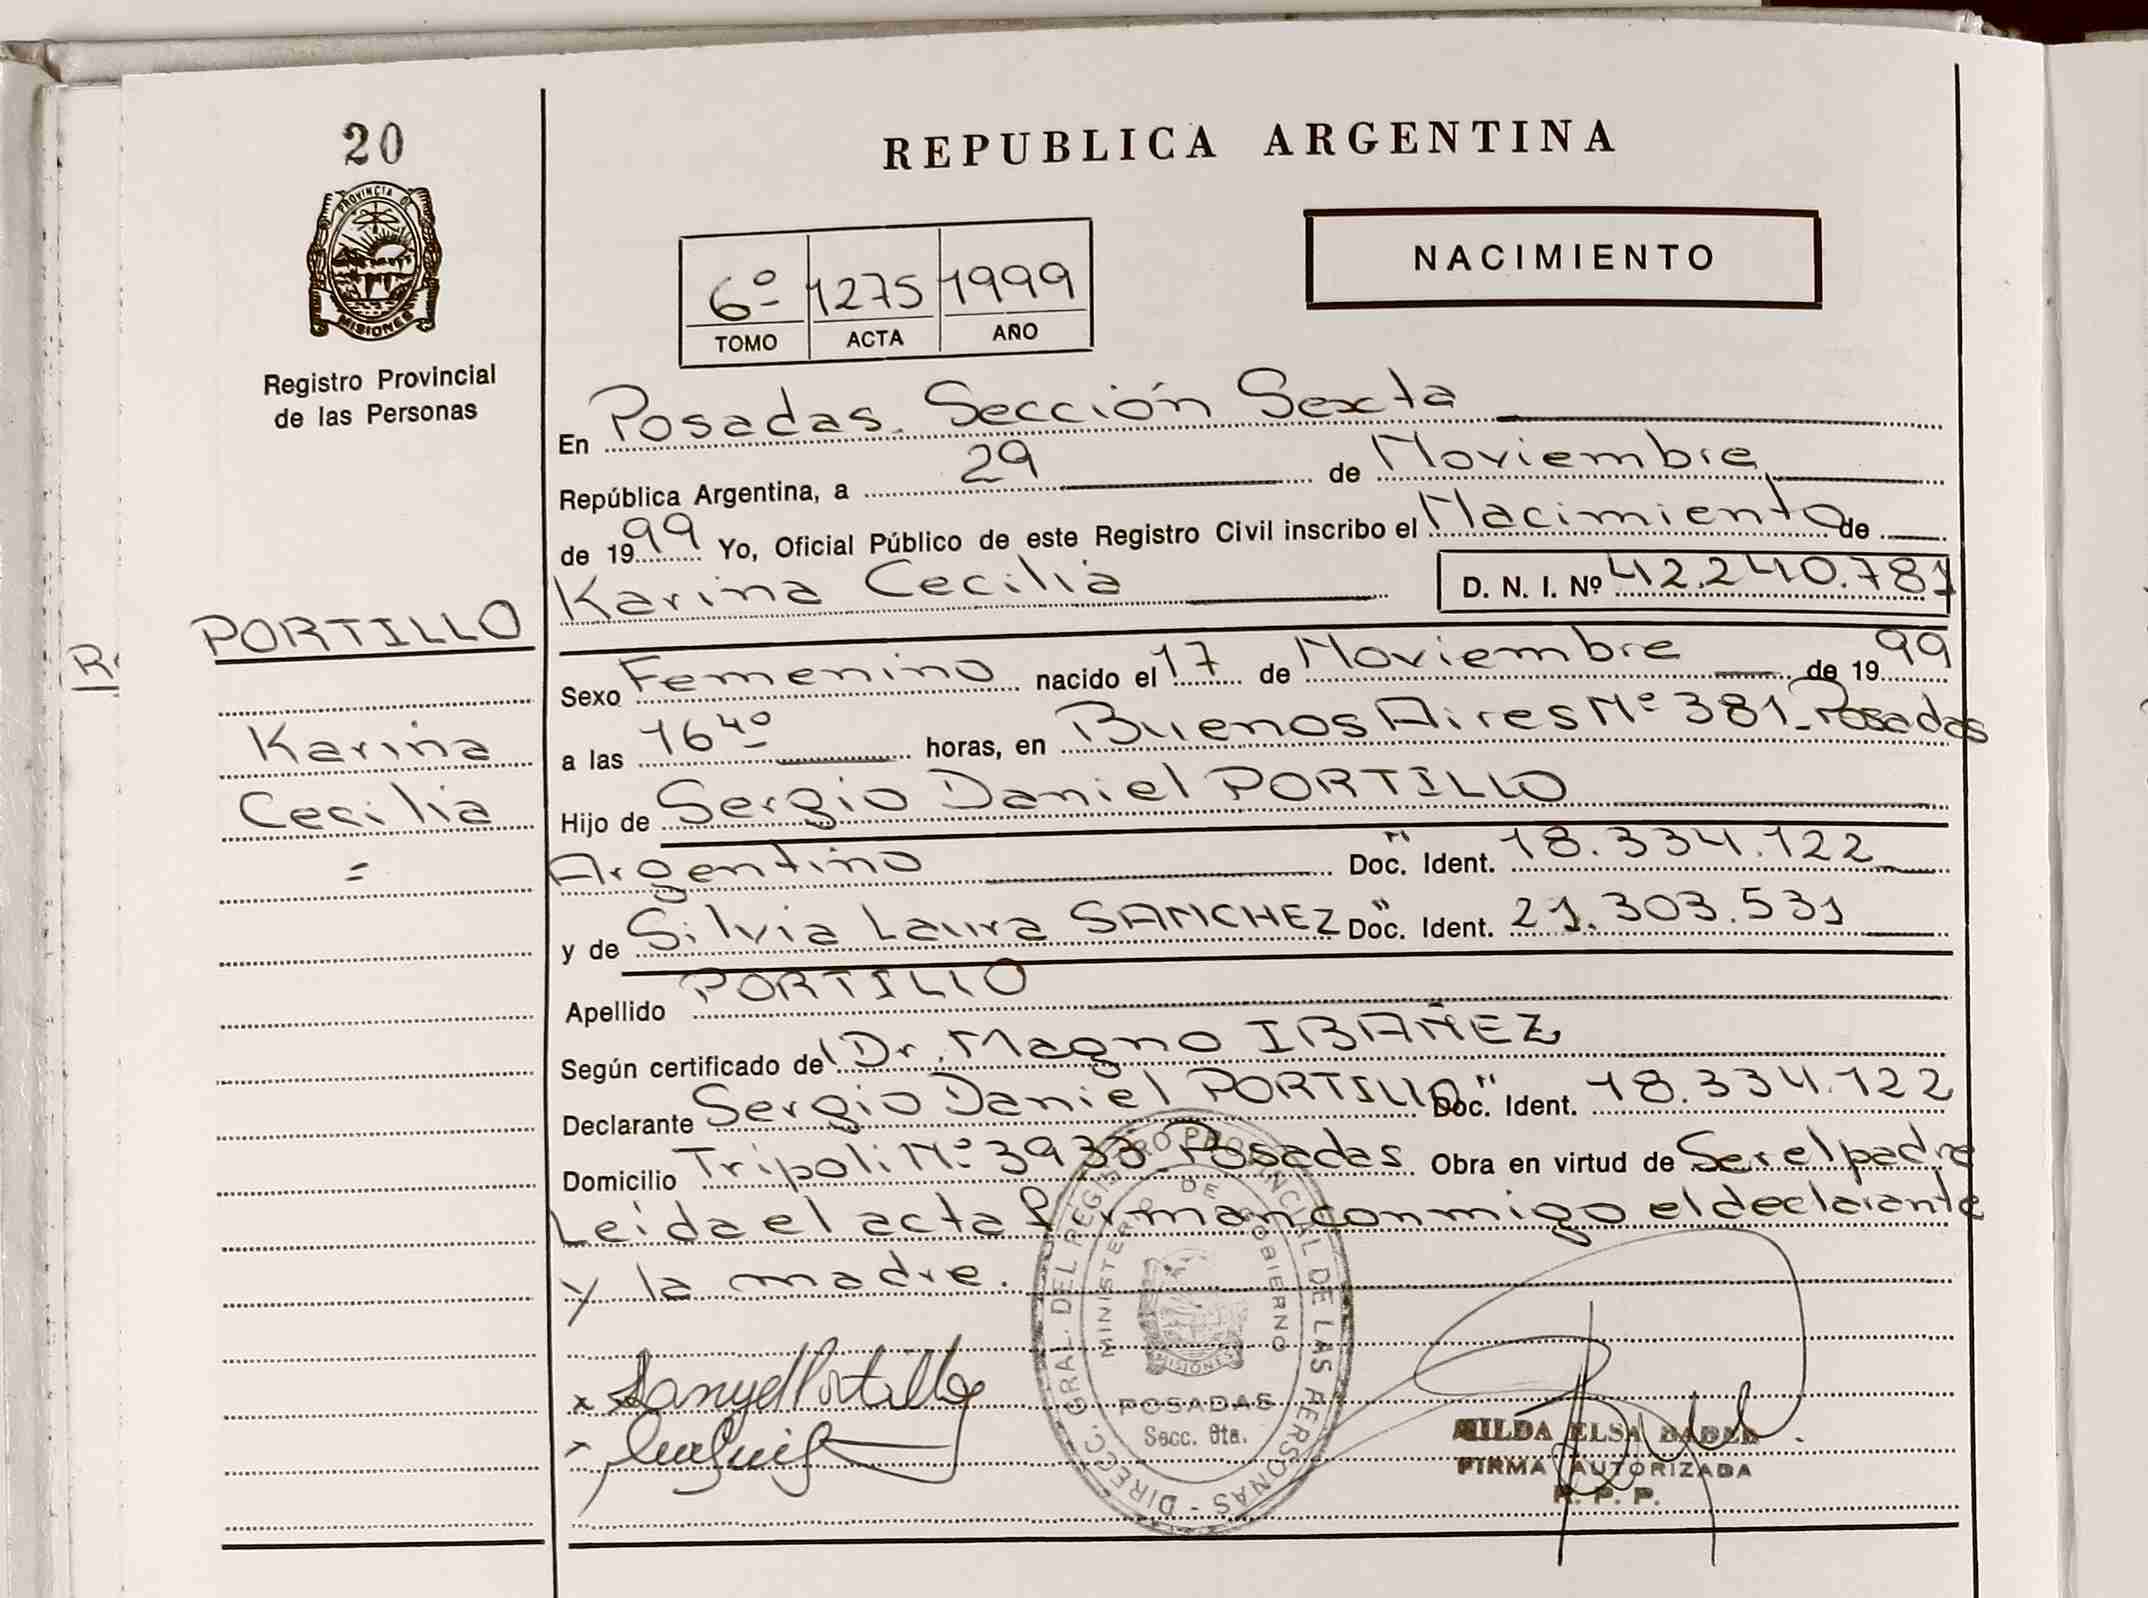 20
PROVINCIA DE
MISIONES
Registro Provincial
de las Personas
PORTILLO
Karina
Cecilia
=
REPUBLICA ARGENTINA
6º 1275 1999
TOMO ACTA AÑO
NACIMIENTO
En Posadas. Sección Sexta
República Argentina, a 29 de Noviembre
de 1999 Yo, Oficial Público de este Registro Civil inscribo el Nacimiento de
Karina Cecilia D. N. I. Nº 42.240.781
Sexo Femenino nacido el 17 de Noviembre de 1999
a las 16⁴⁰ horas, en Buenos Aires Nº 381_Posadas
Hijo de Sergio Daniel PORTILLO
Argentino Doc. Ident. 18.334.122
y de Silvia Laura SANCHEZ Doc. Ident. 21.303.531
Apellido PORTILLO
Según certificado de Dr. Magno IBAÑEZ
Declarante Sergio Daniel PORTILLO Doc. Ident. 18.334.122
Domicilio Tripoli Nº 3933 Posadas Obra en virtud de Ser el padre
Leída el acta firman conmigo el declarante
y la madre.
DIRECC. GRAL. DEL REGISTRO PROVINCIAL DE LAS PERSONAS -
MINISTERIO DE GOBIERNO
MISIONES
POSADAS
Secc. 6ta.
x Danyel Portillo
x
HILDA ELSA
FIRMA AUTORIZADA
R. P. P.